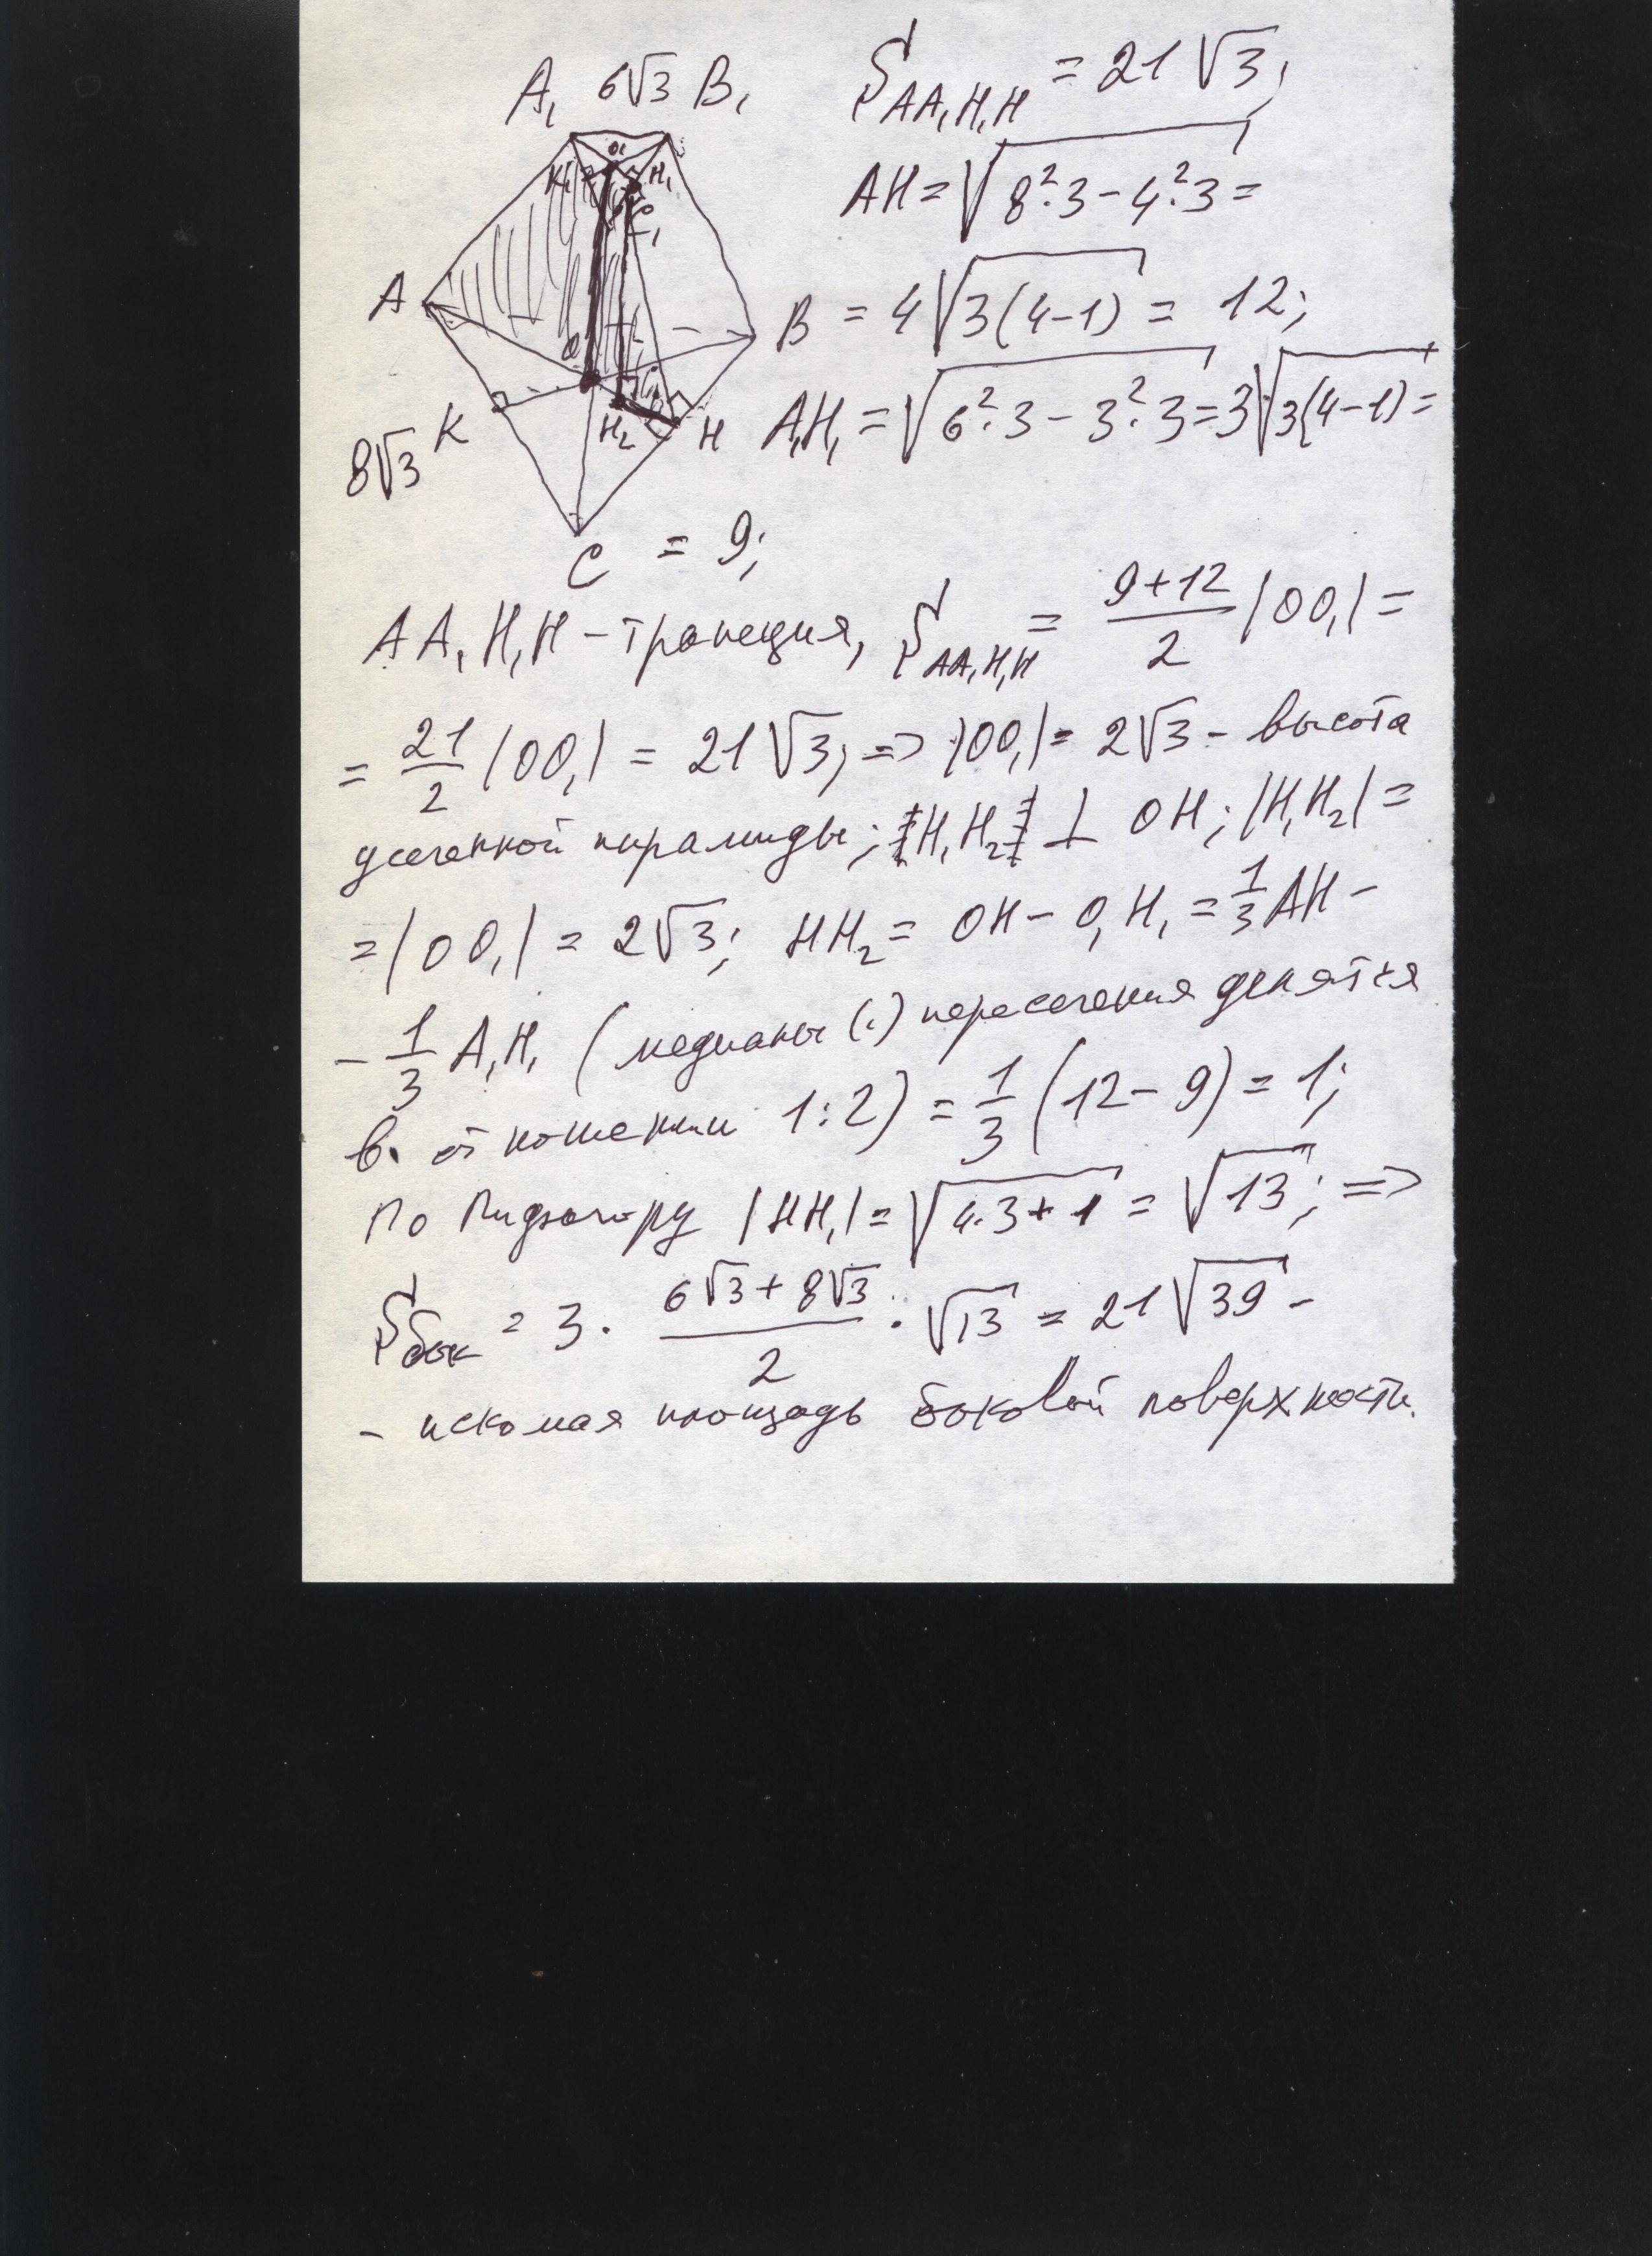 A₁ 6√3 B₁ S_AA₁H₁H = 21√3;
O₁ K₁ H₁ C₁
AH = √(8²·3 − 4²·3) =
A O B = 4√(3(4−1)) = 12;
K H₂ H A₁H₁ = √(6²·3 − 3²·3) = 3√(3(4−1)) =
8√3
C = 9;
AA₁H₁H – трапеция, S_AA₁H₁H = (9+12)/2 |OO₁| =
= 21/2 |OO₁| = 21√3; => |OO₁| = 2√3 – высота
усеченной пирамиды; H₁H₂ ⊥ OH; |H₁H₂| =
= |OO₁| = 2√3; HH₂ = OH − O₁H₁ = 1/3 AH −
− 1/3 A₁H₁ (медианы (·) пересечения делятся
в отношении 1:2) = 1/3 (12 − 9) = 1;
По Пифагору |HH₁| = √(4·3+1) = √13; =>
Sбок = 3 · (6√3 + 8√3)/2 · √13 = 21√39 –
– искомая площадь боковой поверхности.